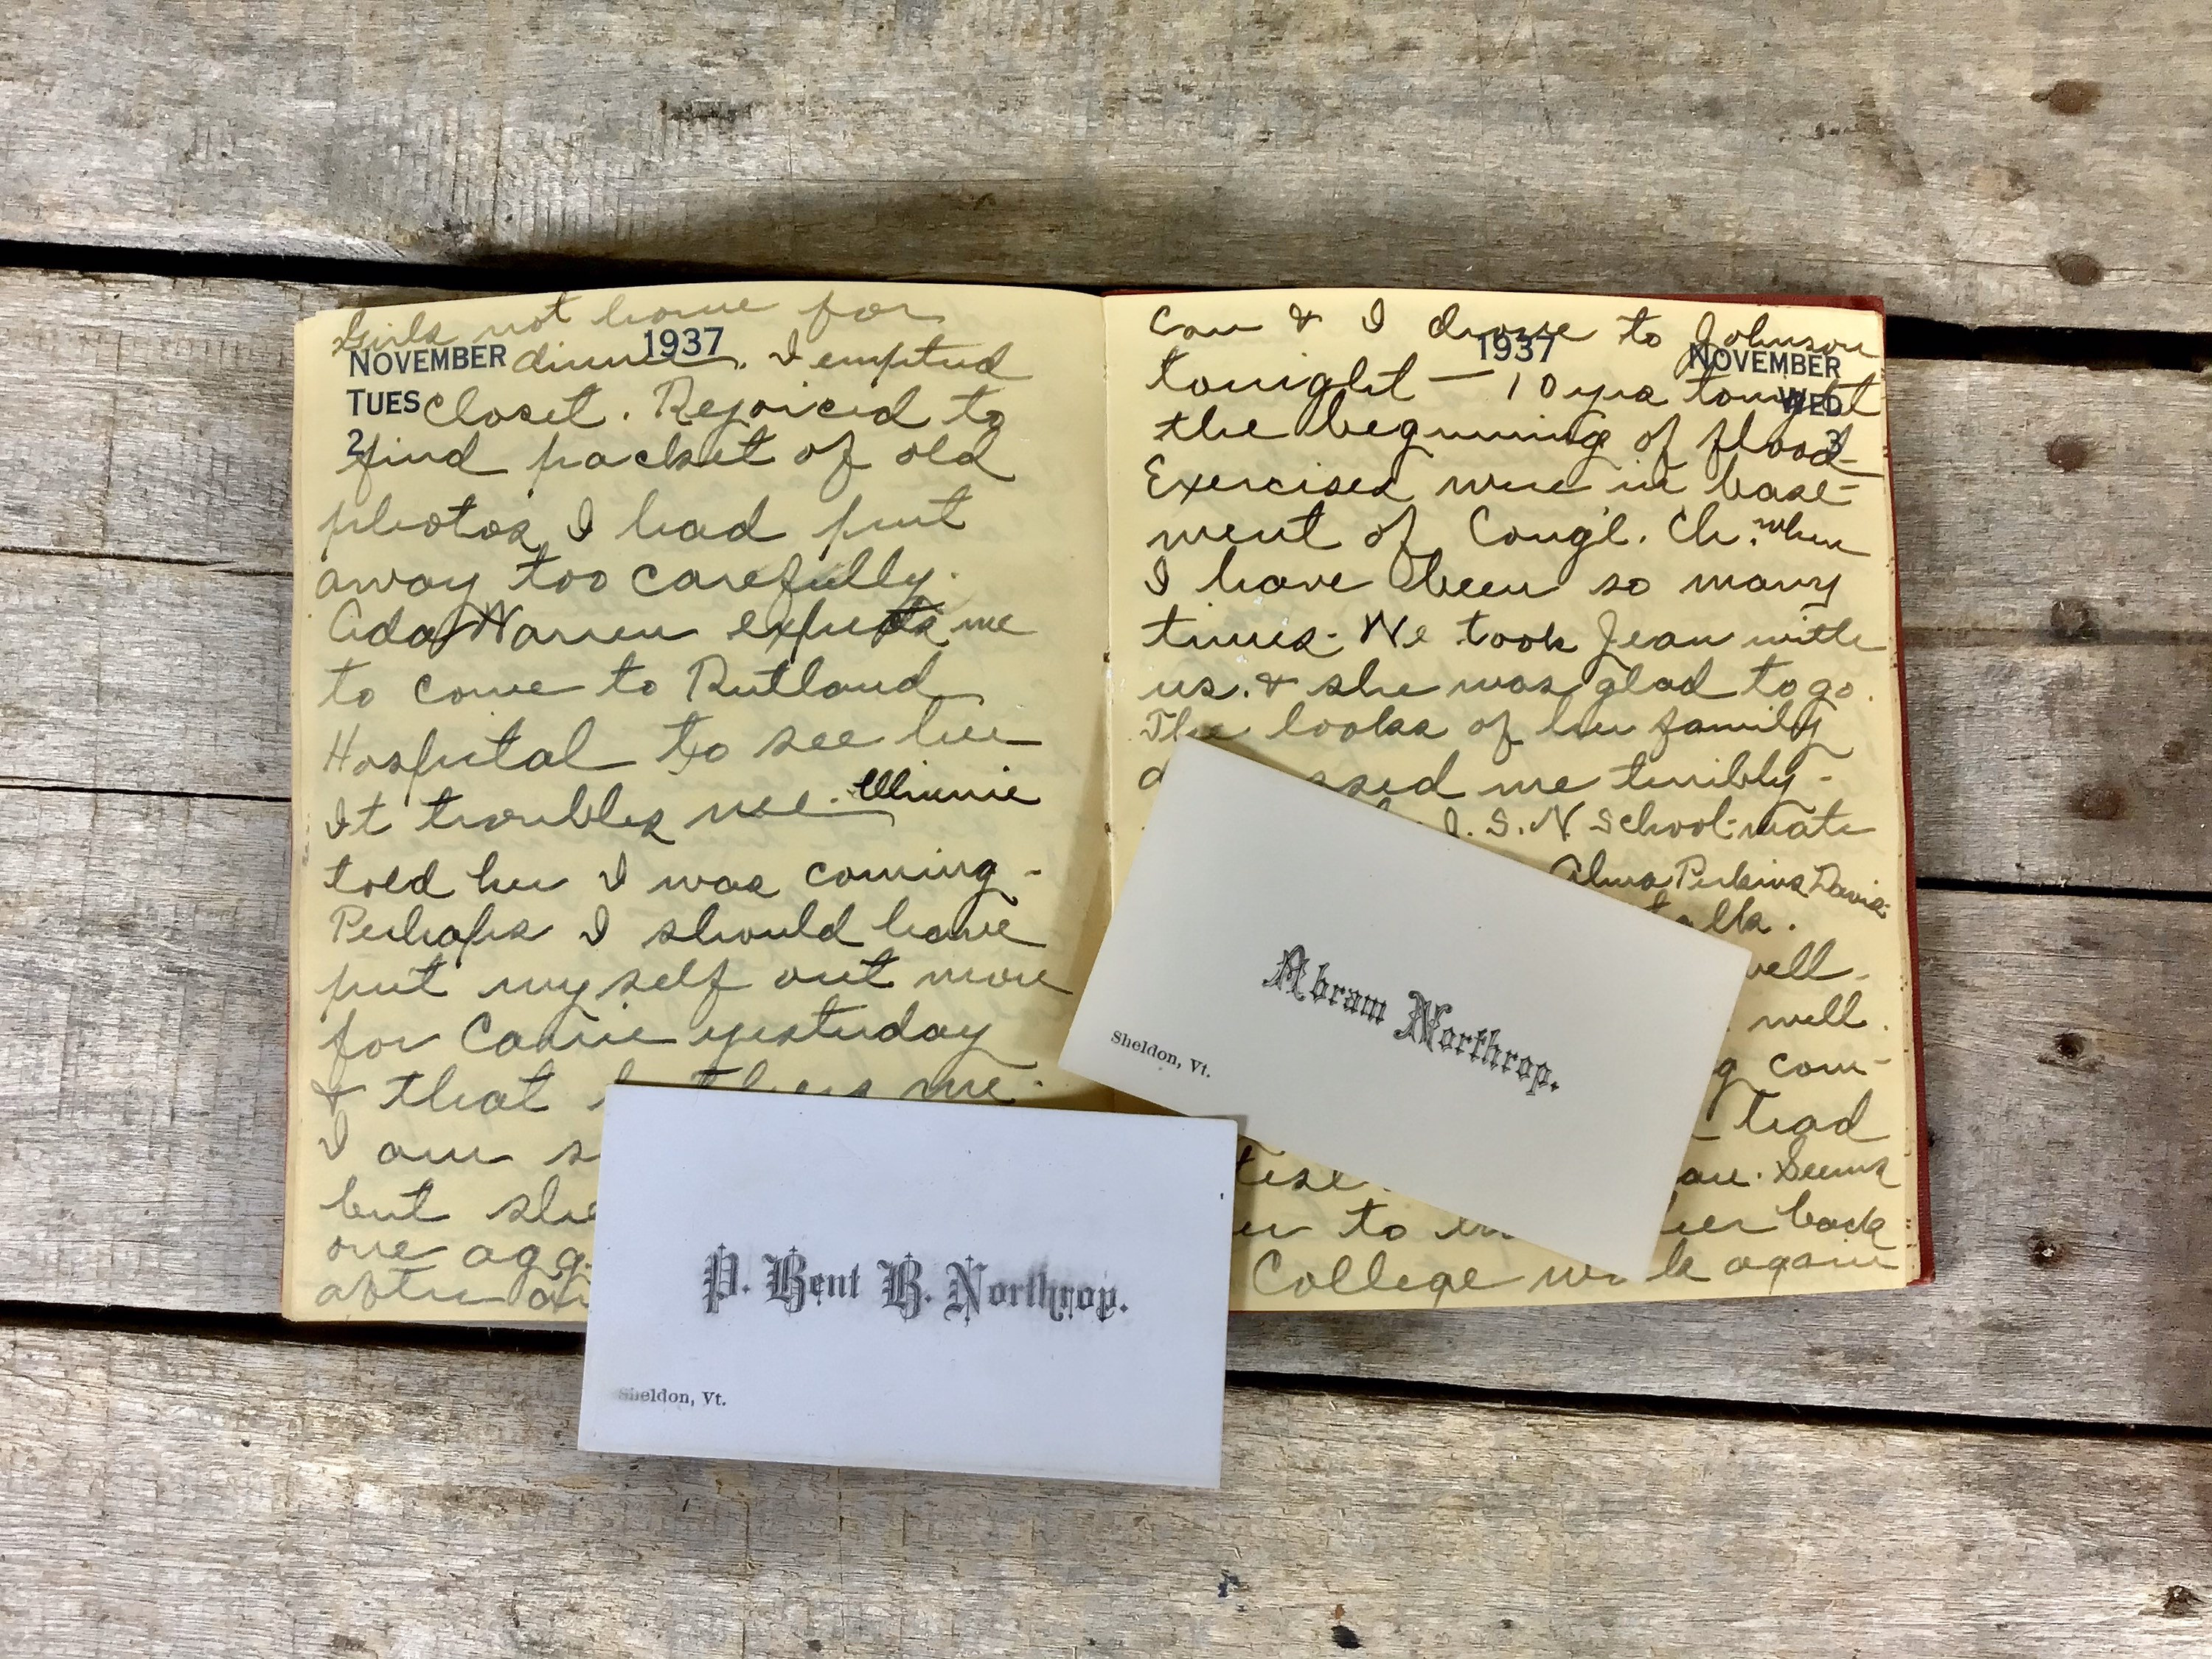 Girls not home for
NOVEMBER 1937
dinner. I emptied
TUES
closet. Rejoiced to
2
find packet of old
photos I had put
away too carefully.
Ada Warren expects me
to come to Rutland
Hospital to see her
It troubles me. Minnie
told her I was coming -
Perhaps I should have
put myself out more
for Carrie yesterday
& that me.
I am
but she
one
after
Con & I drove to Johnson
1937 NOVEMBER
tonight — 10 yrs tonight
WED
the beginning of flood
3
Exercises were in base-
ment of Cong'l. Ch. when
I have been so many
times. We took Jean with
us. & she was glad to go.
The looks of her family
me terribly -
S. N School-mate
Alma Perkins Davis.
talk.
well -
well.
com-
had
Seems
to back
College again
Abram Northrop.
Sheldon, Vt.
P. Bent B. Northrop.
Sheldon, Vt.